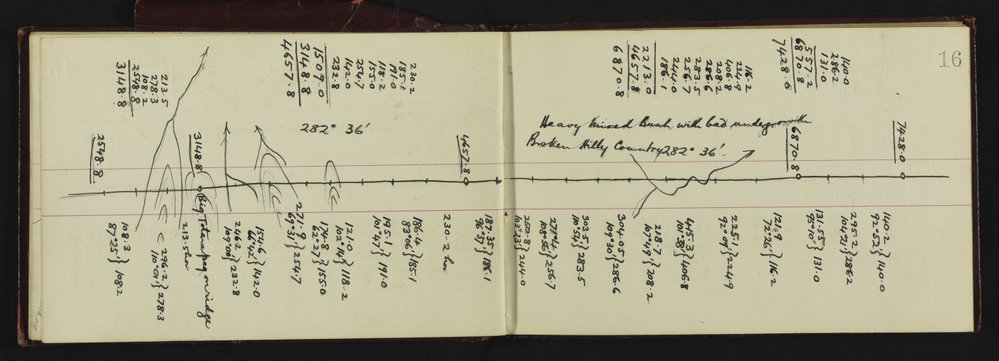 16
213.5
278.3
108.2
2548.8
3148.8
232.8
142.0
254.7
155.0
118.2
191.0
185.1
230.2
1509.0
3148.8
4657.8
186.1
244.0
256.7
283.5
286.6
208.2
406.8
224.9
116.2
2213.0
4657.8
6870.8
131.0
286.2
140.0
557.2
6870.8
7428.0
282° 36'
Heavy mixed Bush with bad undergrowth
Broken Hilly Country 282° 36'
2548.8
3148.8
4657.8
6870.8
7428.0
108.3
87°25' } 108.2
296.2
110°01' } 278.3
213.5 hor
Big Totara peg on ridge
246.2
109°00' } 232.8
154.6
66°42' } 142.0
271.9
69°37' } 254.7
174.8
62°27' } 155.0
121.0
102°14' } 118.2
195.1
101°47' } 191.0
186.4
83°06' } 185.1
230.2 hor
187.35
96°37' } 186.1
250.8
103°23' } 244.0
271.4
108°56' } 256.7
303.5
110°52' } 283.5
304.05
109°30' } 286.6
218.7
107°49' } 208.2
415.3
101°38' } 406.8
225.1
92°09' } 224.9
121.9
72°26' } 116.2
131.55
95°10' } 131.0
295.2
104°21' } 286.2
140.2
92°52' } 140.0